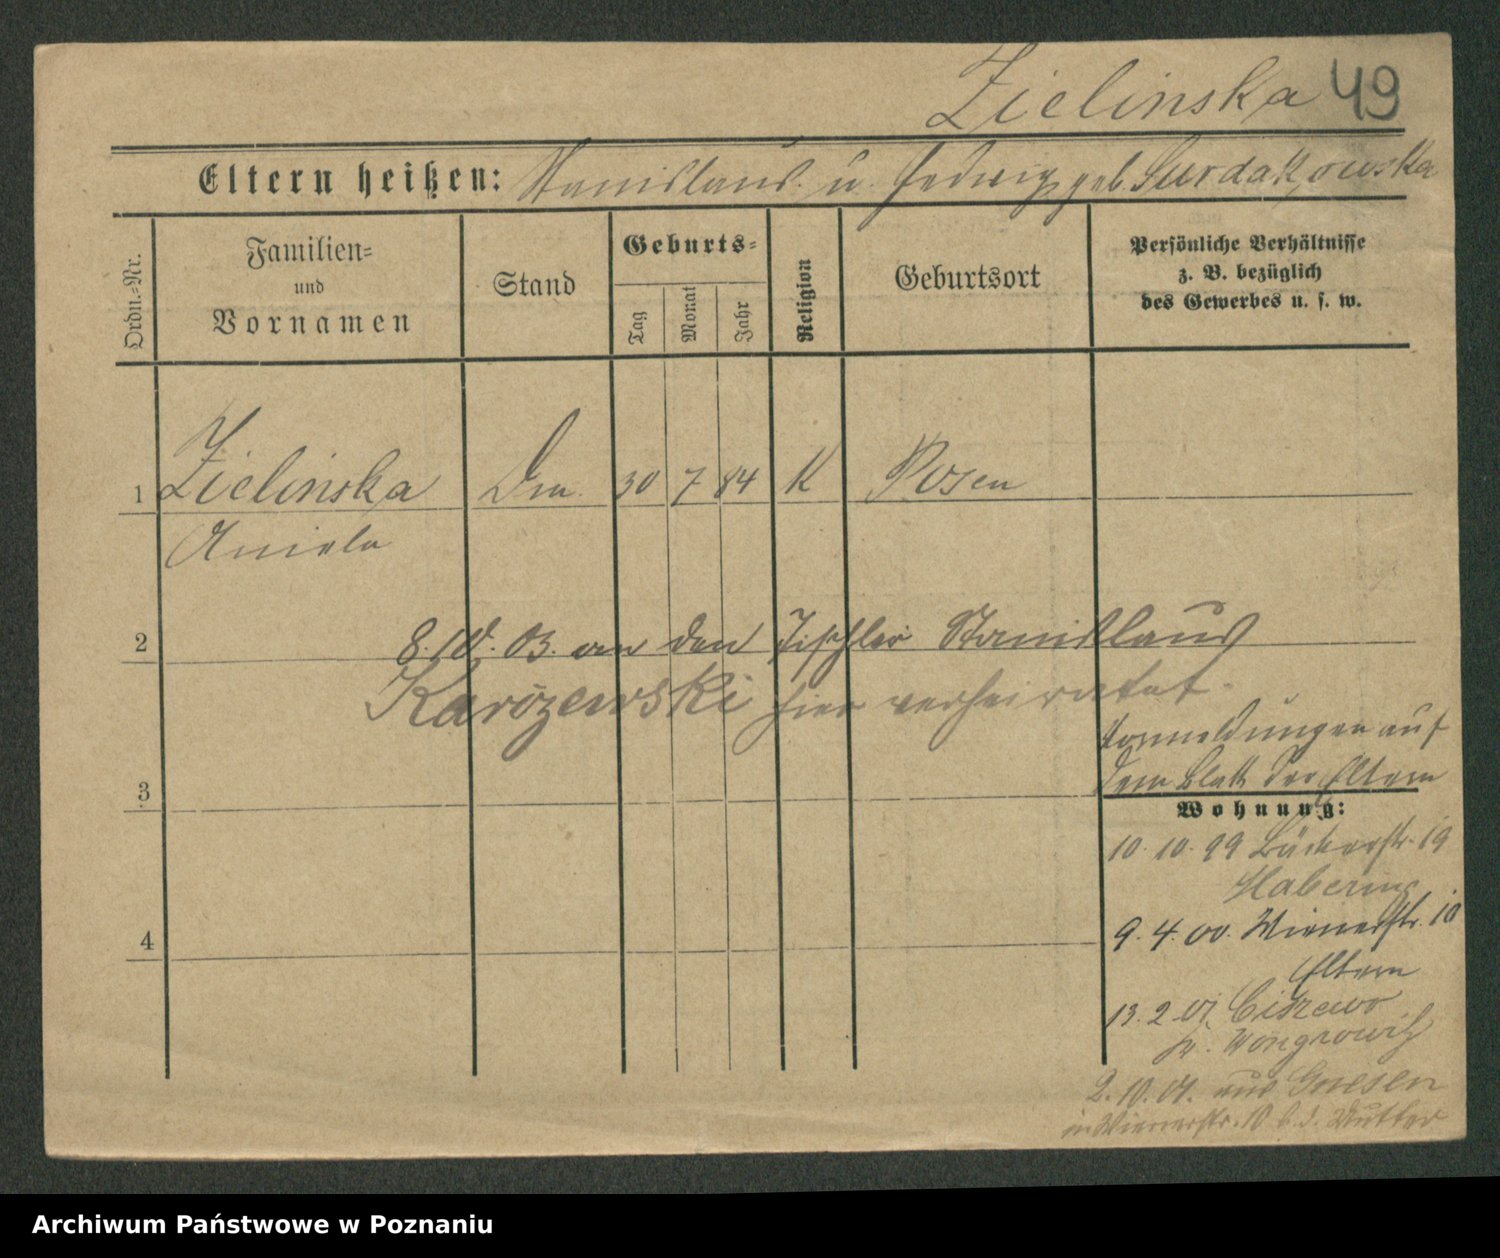 Zielinska 49
Eltern heißen: Stanislaus u. Hedwig geb. Surdakowska
Ordn.=Nr.
Familien=
und
Vornamen
Stand
Geburts=
Tag
Monat
Jahr
Religion
Geburtsort
Persönliche Verhältnisse
z. B. bezüglich
des Gewerbes u. s. w.
1 Zielinska 30 7 84 K Posen
Aniela
2 8. 10. 03. an den Tischler Stanislaus
Karözewski hier verheiratet.
Anmeldungen auf
dem Blatt der Eltern
3
Wohnung:
10. 10. 99 Bäckerstr. 19
Habering
4
9. 4. 00. Wienerstr. 10
Eltern
13. 2. 01 Ciszewo
Kr. Wongrowitz
2. 10. 01. aus Gnesen
in Wienerstr. 10 b. d. Mutter
Archiwum Państwowe w Poznaniu